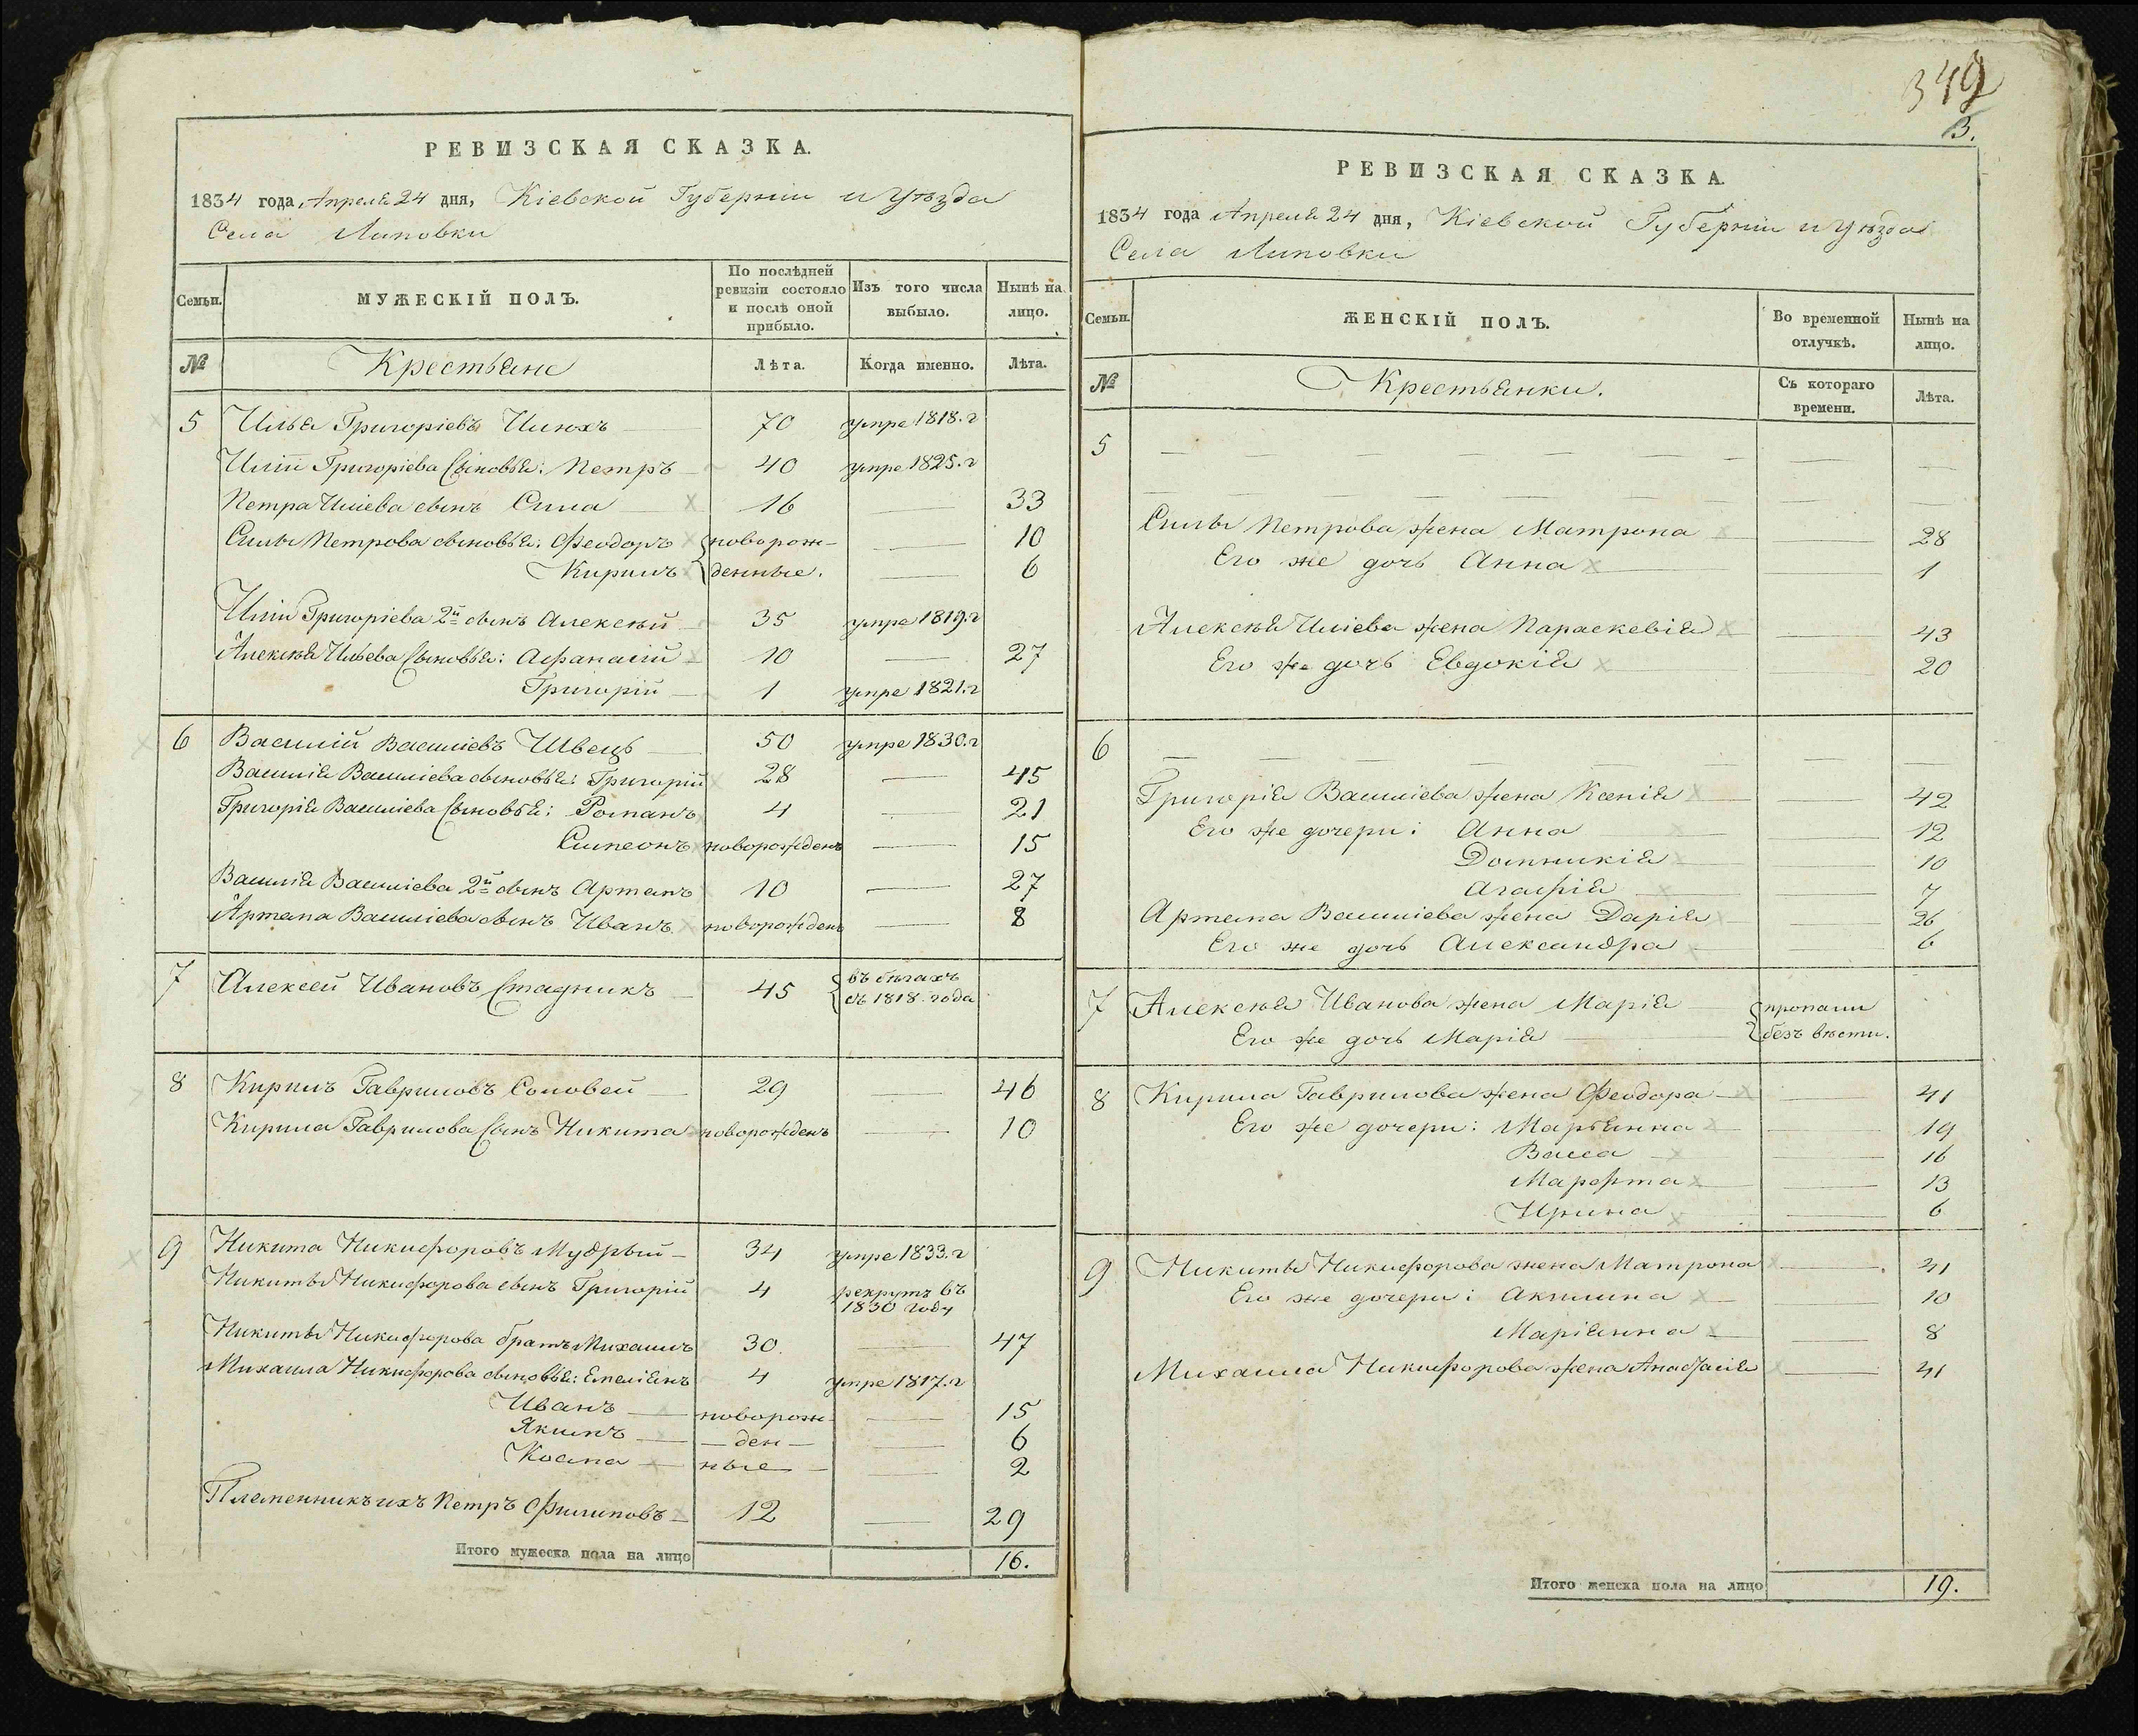 РЕВИЗСКАЯ СКАЗКА.
1834 года Апреля 24 дня, Кіевской Губерніи и Уѣзда
Села Липовки
Семьи.
МУЖЕСКІЙ ПОЛЪ.
По послѣдней ревизіи состояло и послѣ оной прибыло.
Изъ того числа выбыло.
Нынѣ на лицо.
№ Крестьяне Лѣта. Когда именно. Лѣта.
5 Илья Григоріевъ Илюхъ — 70 умре 1818. г
Иліи Григоріева Сыновья: Петръ — 40 умре 1825. г
Петра Иліева сынъ Сила — 16 — 33
Силы Петрова сыновья: Феодоръ новорож- — 10
Кирилъ денные. — 6
Иліи Григоріева 2й сынъ Алексѣй — 35 умре 1819. г
Алексѣя Ильева Сыновья: Афанасій — 10 — 27
Григорій — 1 умре 1821. г
6 Василій Василіевъ Швецъ — 50 умре 1830. г
Василія Василіева сыновья: Григорій 28 — 45
Григорія Василіева Сыновья: Романъ 4 — 21
Симеонъ новорожденъ — 15
Василія Василіева 2й сынъ Артемъ 10 — 27
Артема Василіева сынъ Иванъ новорожденъ — 8
7 Алексей Ивановъ Стадникъ — 45 въ бѣгахъ
съ 1818. года
8 Кирилъ Гавриловъ Соловей — 29 — 46
Кирила Гаврилова Сынъ Никита новорожденъ — 10
9 Никита Никифоровъ Мудрый — 34 умре 1833. г
Никиты Никифорова сынъ Григорій 4 рекрутъ въ
1830 году
Никиты Никифорова братъ Михаилъ 30. — 47
Михаила Никифорова сыновья: Емеліянъ 4 умре 1817. г
Иванъ — новорож- — 15
Якимъ — — ден — — 6
Косма — ные — — 2
Племенникъ ихъ Петръ Филиповъ — 12 — 29
Итого мужеска пола на лицо 16.
349
3.
РЕВИЗСКАЯ СКАЗКА.
1834 года Апреля 24 дня, Кіевской Губерніи и Уѣзда
Села Липовки
Семьи.
ЖЕНСКІЙ ПОЛЪ.
Во временной отлучкѣ.
Нынѣ на лицо.
№ Крестьянки. Съ котораго времени. Лѣта.
5 — — — — — — — — —
— — — — — — — — —
Силы Петрова жена Матрона — — 28
Его же дочь Анна — — 1
Алексѣя Иліева жена Параскевія — — 43
Его же дочь Евдокія — — 20
6 — — — — — — —
Григорія Василіева жена Ксенія — — 42
Его же дочери: Анна — — 12
Домникія — — 10
Агафія — — 7
Артема Василіева жена Дарія — 26
Его же дочь Александра — — 6
7 Алексѣя Иванова жена Марія — пропали
Его же дочь Марія — безъ вѣсти.
8 Кирила Гаврилова жена Феодора — — 41
Его же дочери: Марьянна — — 19
Васса — — 16
Марфта — — 13
Ирина — — 6
9 Никиты Никифорова жена Матрона — 41
Его же дочери: Акилина — — 10
Маріянна — — 8
Михаила Никифорова жена Анастасія — 41
Итого женска пола на лицо 19.